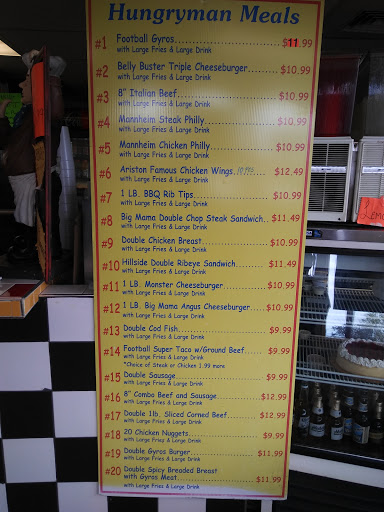 Hungryman Meals
#1 Football Gyros.................. $11.99
with Large Fries & Large Drink
#2 Belly Buster Triple Cheeseburger......... $10.99
with Large Fries & Large Drink
#3 8" Italian Beef......................... $10.99
with Large Fries & Large Drink
#4 Mannheim Steak Philly.................. $10.99
with Large Fries & Large Drink
#5 Mannheim Chicken Philly................ $10.99
with Large Fries & Large Drink
#6 Ariston Famous Chicken Wings. 10 PCS ..... $12.49
with Large Fries & Large Drink
#7 1 LB. BBQ Rib Tips................... $10.99
with Large Fries & Large Drink
#8 Big Mama Double Chop Steak Sandwich.. $11.49
with Large Fries & Large Drink
#9 Double Chicken Breast................. $10.99
with Large Fries & Large Drink
#10 Hillside Double Ribeye Sandwich......... $11.49
with Large Fries & Large Drink
#11 1 LB. Monster Cheeseburger........... $10.99
with Large Fries & Large Drink
#12 1 LB. Big Mama Angus Cheeseburger..... $10.99
with Large Fries & Large Drink
#13 Double Cod Fish....................... $9.99
with Large Fries & Large Drink
#14 Football Super Taco w/Ground Beef...... $9.99
with Large Fries & Large Drink
*Choice of Steak or Chicken 1.99 more
#15 Double Sausage....................... $9.99
with Large Fries & Large Drink
#16 8" Combo Beef and Sausage........... $12.99
with Large Fries & Large Drink
#17 Double 1lb. Sliced Corned Beef........ $12.99
with Large Fries & Large Drink
#18 20 Chicken Nuggets................... $9.99
with Large Fries & Large Drink
#19 Double Gyros Burger................. $11.99
with Large Fries & Large Drink
#20 Double Spicy Breaded Breast
with Gyros Meat..................... $11.99
with Large Fries & Large Drink